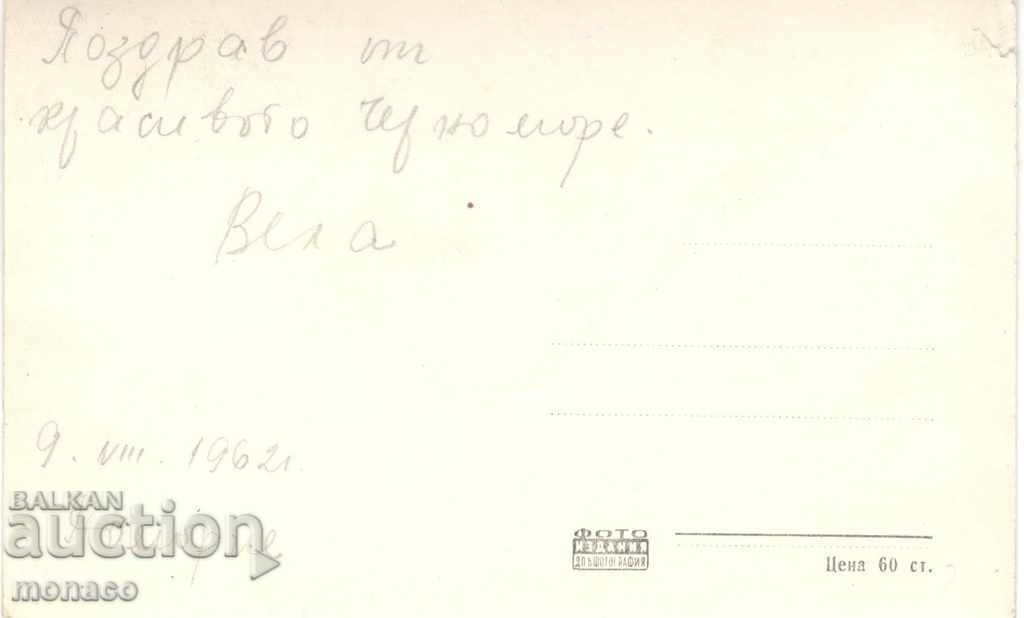 Поздрав от
красивото Черноморе.
Вела
9. VIII. 1962г.
BALKAN
auction
monaco
ФОТО
ИЗДАНИЯ
ДП БЪЛГ. ФОТОГРАФИЯ
Цена 60 ст.